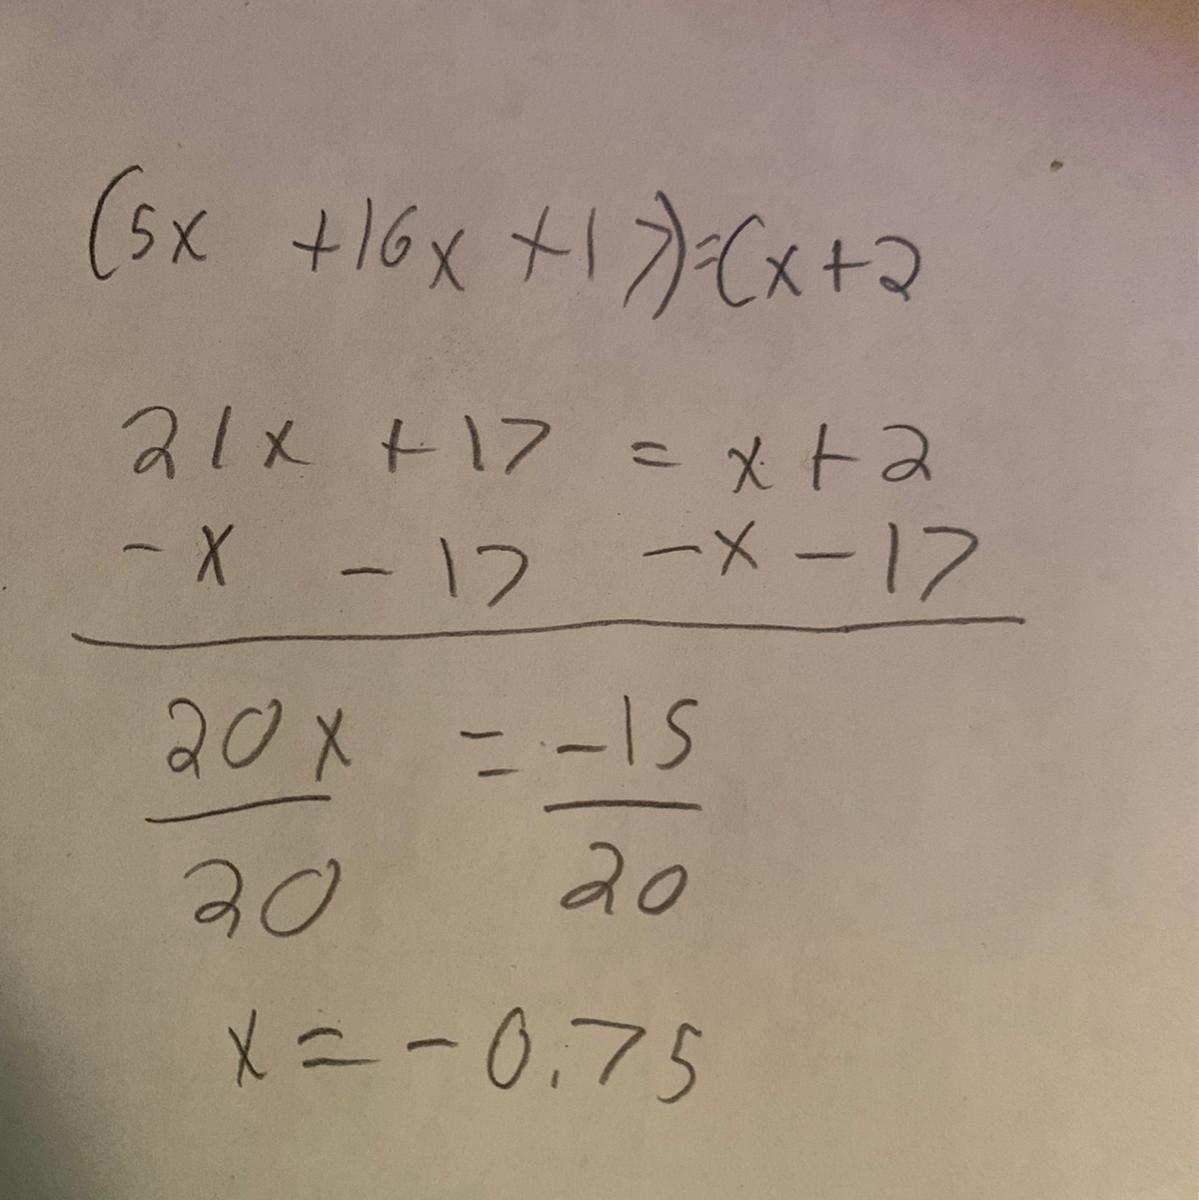 (5x +16x +17)=(x+2
21x +17 = x+2
-x -17 -x -17
20x = -15
20 20
x = -0.75